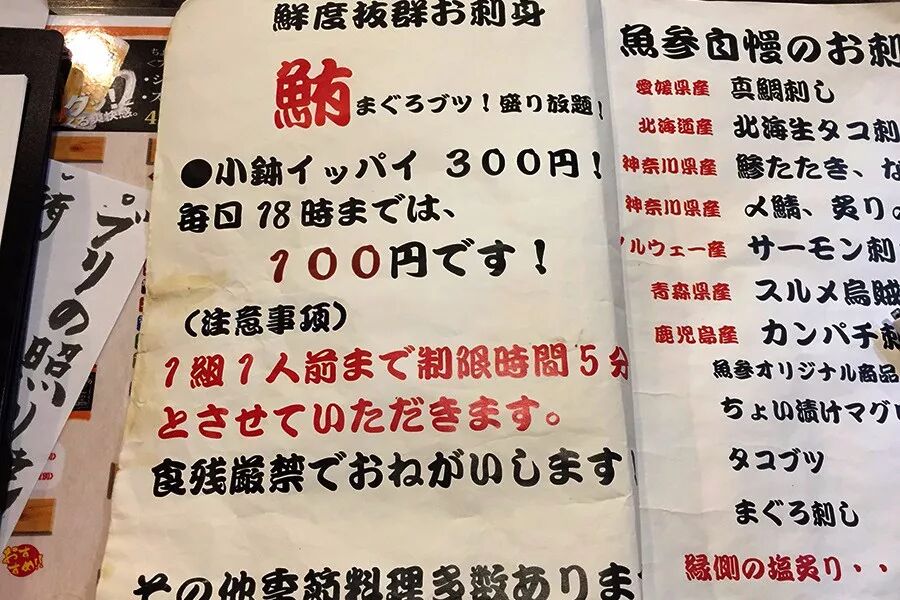 鮮度抜群お刺身
鮪まぐろブツ！盛り放題！
●小鉢イッパイ ３００円！
毎日18時までは、
１００円です！
（注意事項）
１組１人前まで制限時間５分
とさせていただきます。
食残厳禁でおねがいします！
その他季節料理多数あります
魚参自慢のお刺
愛媛県産 真鯛刺し
北海道産 北海生タコ刺
神奈川県産 鯵たたき、な
神奈川県産 〆鯖、炙り
ノルウェー産 サーモン刺
青森県産 スルメ烏賊
鹿児島産 カンパチ刺
魚参オリジナル商品
ちょい漬けマグロ
タコブツ
まぐろ刺し
縁側の塩炙り・・
ブリの照り
おすすめ!!